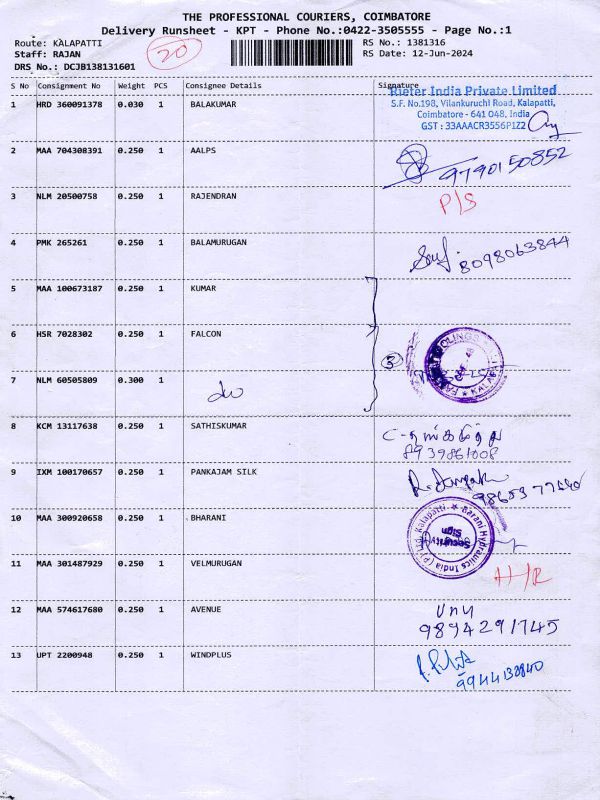 THE PROFESSIONAL COURIERS, COIMBATORE
Delivery Runsheet - KPT - Phone No.:0422-3505555 - Page No.:1
Route: KALAPATTI 20 RS No.: 1381316
Staff: RAJAN RS Date: 12-Jun-2024
DRS No.: DCJB138131601
S No Consignment No Weight PCS Consignee Details Signature
Rieter India Private Limited
1 HRD 360091378 0.030 1 BALAKUMAR S.F. No.198, Vilankuruchi Road, Kalapatti,
Coimbatore - 641 048, India
GST : 33AAACR3556P1Z2
2 MAA 704308391 0.250 1 AALPS 9790150852
3 NLM 20500758 0.250 1 RAJENDRAN P/S
4 PMK 265261 0.250 1 BALAMURUGAN 8098063844
5 MAA 100673187 0.250 1 KUMAR
6 HSR 7028302 0.250 1 FALCON
3
7 NLM 60505809 0.300 1 do
8 KCM 13117638 0.250 1 SATHISKUMAR
9 IXM 100170657 0.250 1 PANKAJAM SILK
10 MAA 300920658 0.250 1 BHARANI Barani Hydraulics India (P) Ltd. Kalapatti
Security Sign
11 MAA 301487929 0.250 1 VELMURUGAN H/R
12 MAA 574617680 0.250 1 AVENUE
9894291745
13 UPT 2200948 0.250 1 WINDPLUS
9944132840